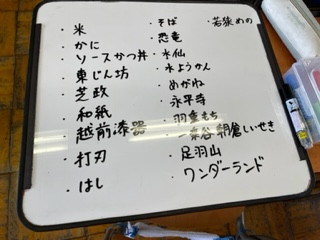 ・米
・かに
・ソースかつ丼
・東じん坊
・芝政
・和紙
・越前漆器
・打刃
・はし
・そば
・恐竜
・水仙
・水ようかん
・めがね
・永平寺
・羽二重もち
・一乗谷朝倉しいせき
・足羽山
・ワンダーランド
・若狭めの